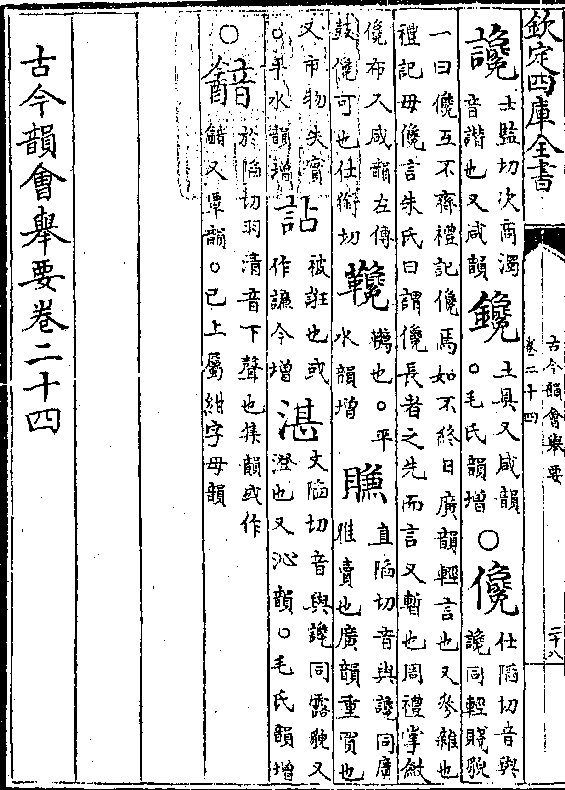 欽定四庫全書
古今韻會舉要
卷二十四
二十八
讒士監切次商濁音譖也又咸韻鑱土具又咸韻。毛氏韻增○儳仕陷切音與讒同輕賤貌
一曰儳互不齊禮記儳焉如不終日廣韻輕言也又參雜也
禮記毋儳言朱氏曰謂儳長者之先而言又暫也周禮掌斂
儳布又咸韻左傳鼓儳可也仕銜切也。平水韻增賺直陷切音與讒同廣雅賣也廣韻重買也
又市物失實。平水韻增詀被誑也或作謙今增湛丈陷切音與讒同露貌又澄也又沁韻。毛氏韻增
○韽於陷切羽清音下聲也集韻或作又覃韻。已上屬紺字母韻
古今韻會舉要卷二十四